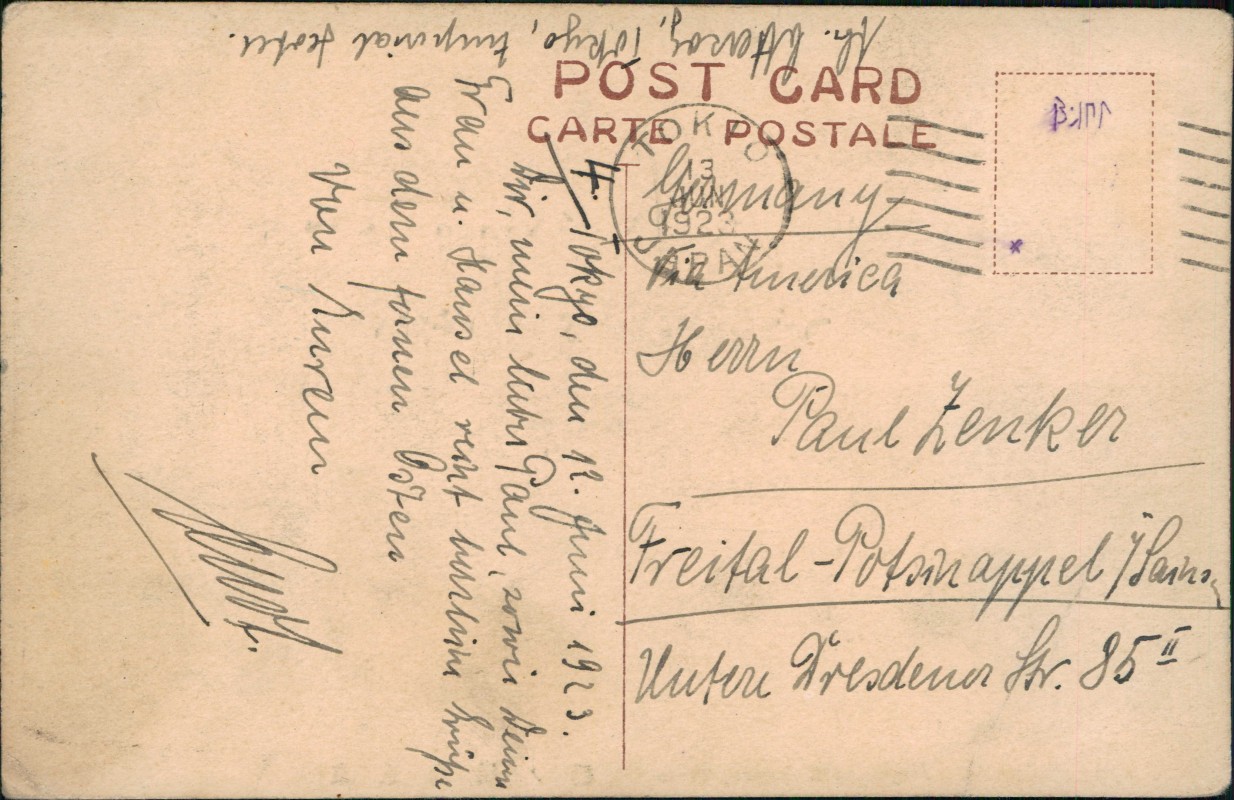 POST CARD
CARTE POSTALE
TOKIO
13
JUN
1923
JAPAN
Germany
Via America
Herrn
Paul Zenker
Freital-Potschappel
Untere Dresdener Str. 85 II
4.
Tokyo, den 12. Juni 1923.
Dir, mein lieber Paul, sowie Deiner
Frau u. Hansel recht herzliche Grüße
aus dem fernen Osten
Von Eurem
Tokyo, Imperial Hotel.